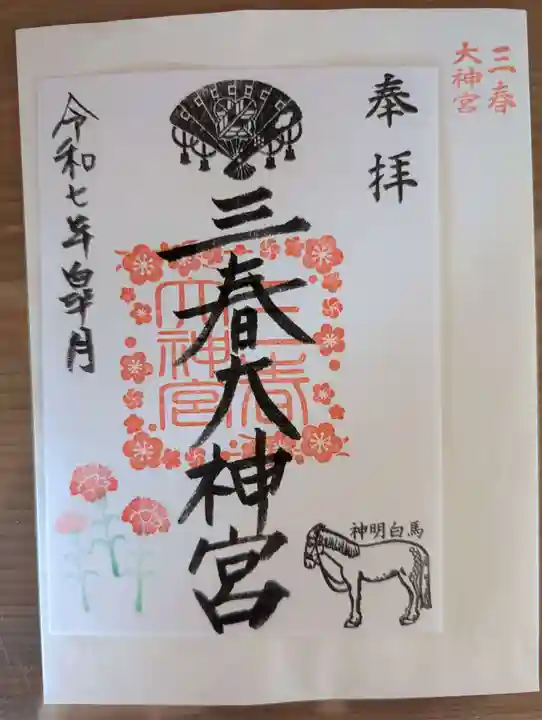 三春
大神宮
奉拝
三春大神宮
三春
大神宮
神明白馬
令和七年皐月